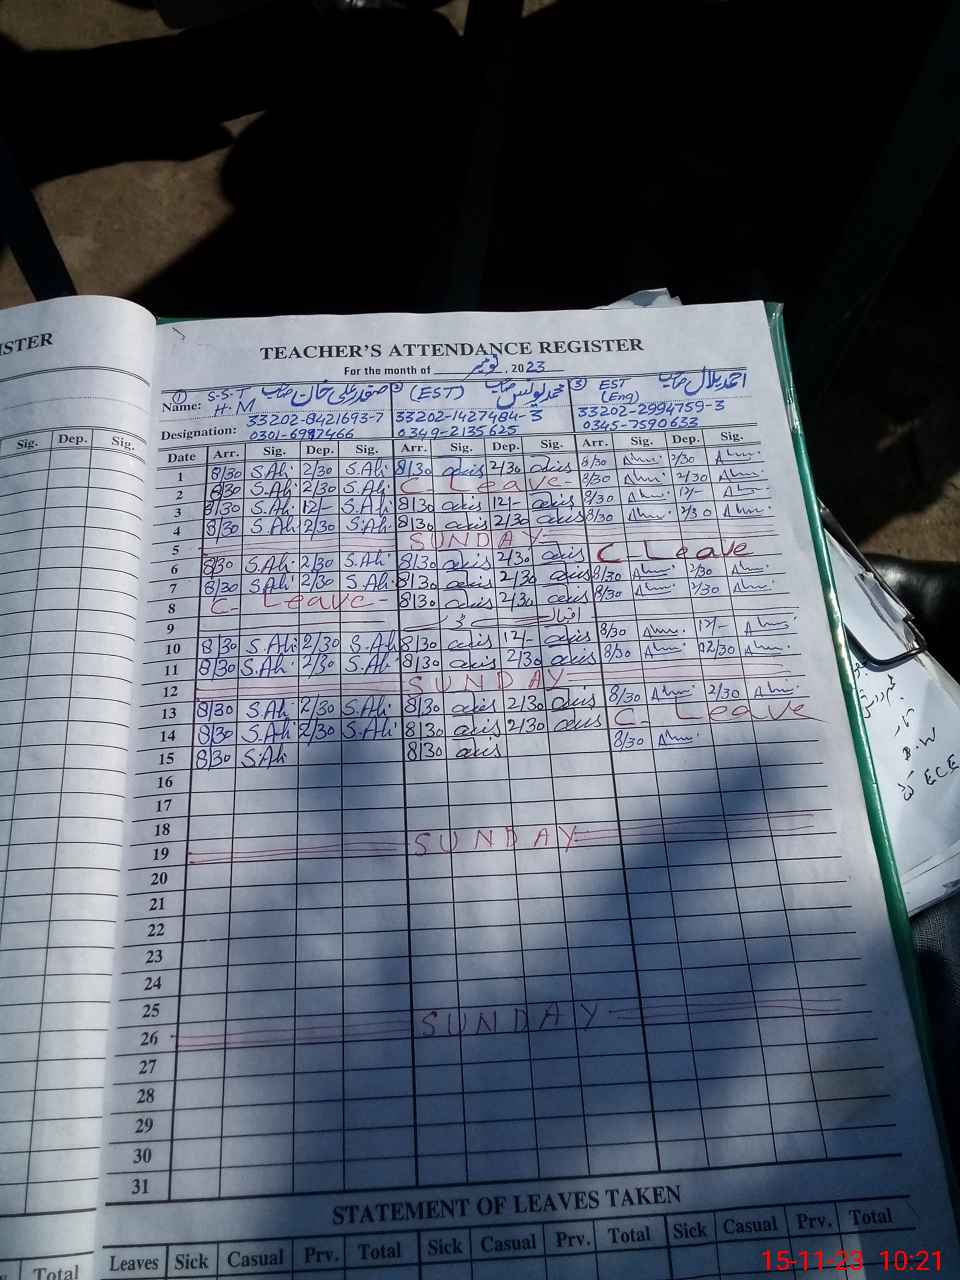 ISTER
TEACHER'S ATTENDANCE REGISTER
For the month of نومبر, 2023
① S.S.T صفدر علی خان صاحب ② (EST) محمد یونس صاحب ③ EST احمد بلال صاحب
Name: H.M (Eng)
33202-8421693-7 33202-1427484-3 33202-2994759-3
Designation: 0301-6987466 0349-2135625 0345-7590633
Sig. Dep. Sig. Date Arr. Sig. Dep. Sig. Arr. Sig. Dep. Sig. Arr. Sig. Dep. Sig.
1 8/30 S.Ali 2/30 S.Ali 8/30 2/30 8/30 2/30
2 8/30 S.Ali 2/30 S.Ali C Leave- 8/30 2/30
3 8/30 S.Ali 12/- S.Ali 8/30 12/- 8/30 12/-
4 8/30 S.Ali 2/30 S.Ali 8/30 2/30 8/30 2/30
5 SUNDAY
6 8/30 S.Ali 2/30 S.Ali 8/30 2/30 C Leave
7 8/30 S.Ali 2/30 S.Ali 8/30 2/30 8/30 2/30
8 C- Leave- 8/30 2/30 8/30 2/30
9 اقبال ڈے
10 8/30 S.Ali 2/30 S.Ali 8/30 12/- 8/30 12/-
11 8/30 S.Ali 2/30 S.Ali 8/30 2/30 8/30 2/30
12 SUNDAY
13 8/30 S.Ali 2/30 S.Ali 8/30 2/30 8/30 2/30
14 8/30 S.Ali 2/30 S.Ali 8/30 2/30 C- Leave
15 8/30 S.Ali 8/30 8/30
16
17
18
19 SUNDAY
20
21
22
23
24
25
26 SUNDAY
27
28
29
30
31
STATEMENT OF LEAVES TAKEN
Total Leaves Sick Casual Prv. Total Sick Casual Prv. Total Sick Casual Prv. Total
D.W
ECE
15-11-23 10:21